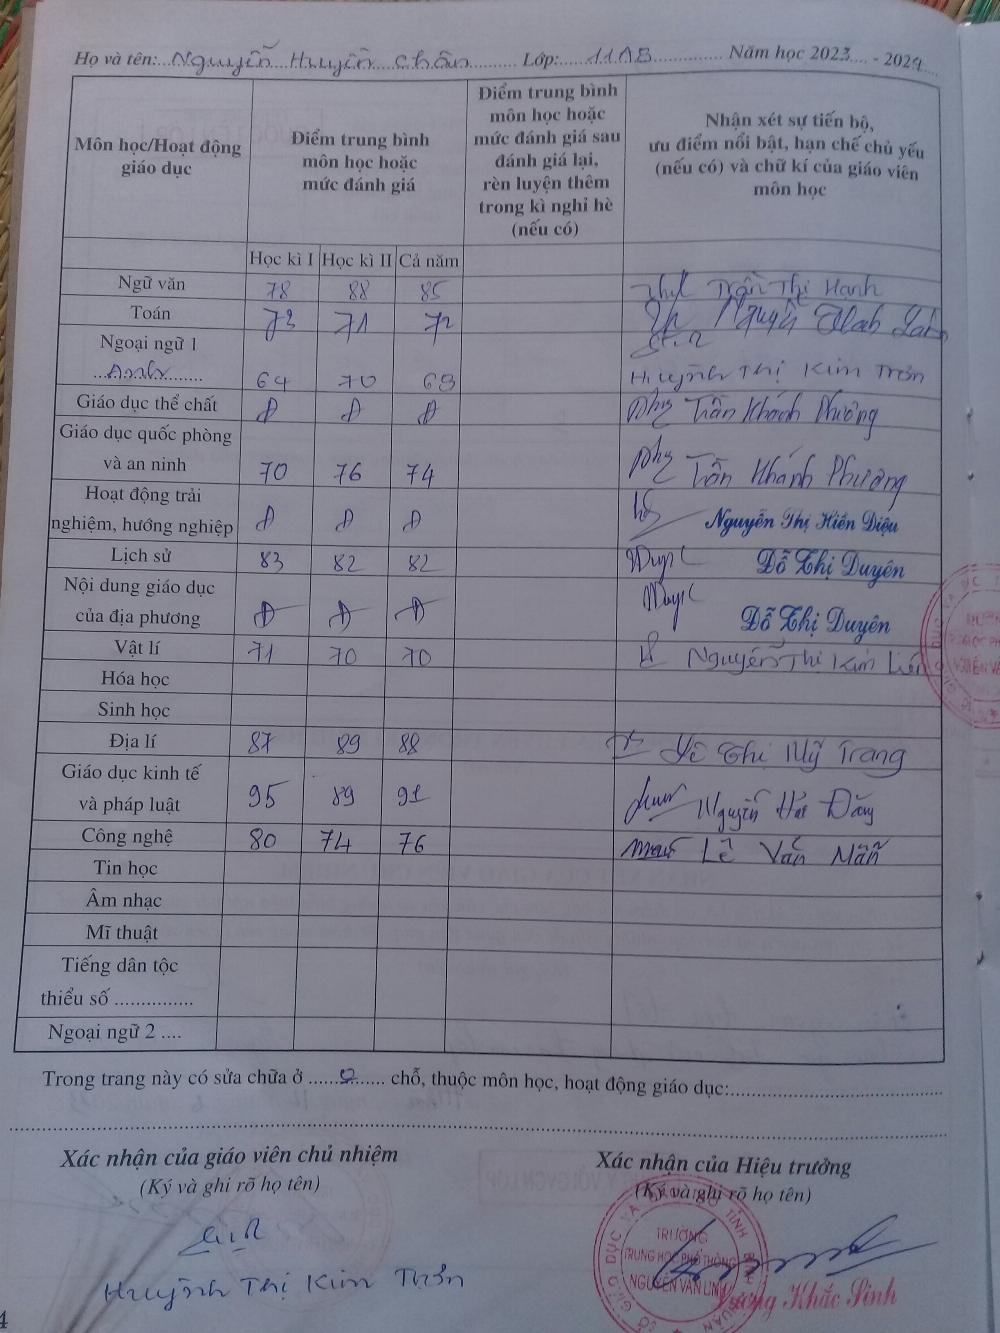 Họ và tên: Nguyễn Huyền Chân Lớp: 11A8 Năm học 2023 - 2024
Môn học/Hoạt động
giáo dục
Điểm trung bình
môn học hoặc
mức đánh giá
Điểm trung bình
môn học hoặc
mức đánh giá sau
đánh giá lại,
rèn luyện thêm
trong kì nghỉ hè
(nếu có)
Nhận xét sự tiến bộ,
ưu điểm nổi bật, hạn chế chủ yếu
(nếu có) và chữ kí của giáo viên
môn học
Học kì I Học kì II Cả năm
Ngữ văn 78 88 85 Trần Thị Hạnh
Toán 73 71 72 Nguyễn
Ngoại ngữ 1
Anh 64 70 68 Huỳnh Thị Kim Trơn
Giáo dục thể chất Đ Đ Đ Trần Khánh Phương
Giáo dục quốc phòng
và an ninh 70 76 74 Trần Khánh Phương
Hoạt động trải
nghiệm, hướng nghiệp Đ Đ Đ Nguyễn Thị Hiền Diệu
Lịch sử 83 82 82 Đỗ Thị Duyên
Nội dung giáo dục
của địa phương Đ Đ Đ Đỗ Thị Duyên
Vật lí 71 70 70 Nguyễn Thị Kim Liên
Hóa học
Sinh học
Địa lí 87 89 88 Lê Thị Mỹ Trang
Giáo dục kinh tế
và pháp luật 95 89 91 Nguyễn
Công nghệ 80 74 76 Lê Văn Mẫn
Tin học
Âm nhạc
Mĩ thuật
Tiếng dân tộc
thiểu số ...............
Ngoại ngữ 2 ....
Trong trang này có sửa chữa ở ......0...... chỗ, thuộc môn học, hoạt động giáo dục:
Xác nhận của giáo viên chủ nhiệm
(Ký và ghi rõ họ tên)
Huỳnh Thị Kim Trơn
Xác nhận của Hiệu trưởng
(Ký và ghi rõ họ tên)
TRƯỜNG
TRUNG HỌC PHỔ THÔNG
NGUYỄN VĂN LINH
Khắc Sinh
4